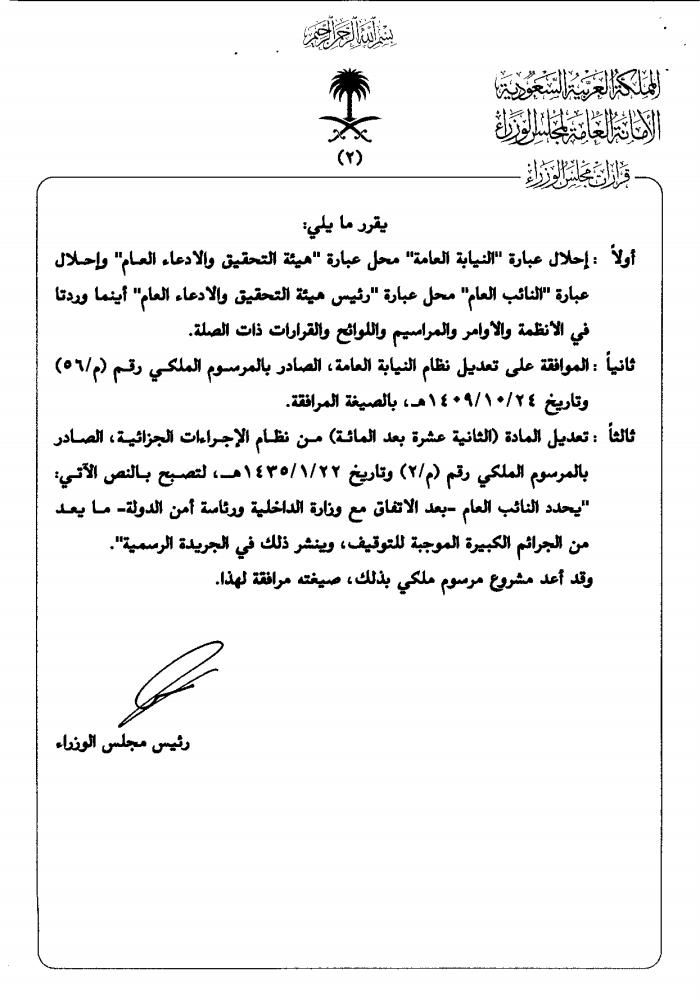 بسم الله الرحمن الرحيم
المملكة العربية السعودية
الأمانة العامة لمجلس الوزراء
(٢)
قرارات مجلس الوزراء
يقرر ما يلي:
أولاً : إحلال عبارة "النيابة العامة" محل عبارة "هيئة التحقيق والادعاء العام" وإحلال
عبارة "النائب العام" محل عبارة "رئيس هيئة التحقيق والادعاء العام" أينما وردتا
في الأنظمة والأوامر والمراسيم واللوائح والقرارات ذات الصلة.
ثانياً : الموافقة على تعديل نظام النيابة العامة، الصادر بالمرسوم الملكي رقم (م/٥٦)
وتاريخ ١٤٠٩/١٠/٢٤هـ، بالصيغة المرافقة.
ثالثاً : تعديل المادة (الثانية عشرة بعد المائة) من نظام الإجراءات الجزائية، الصادر
بالمرسوم الملكي رقم (م/٢) وتاريخ ١٤٣٥/١/٢٢هـ، لتصبح بالنص الآتي:
"يحدد النائب العام -بعد الاتفاق مع وزارة الداخلية ورئاسة أمن الدولة- ما يعد
من الجرائم الكبيرة الموجبة للتوقيف، وينشر ذلك في الجريدة الرسمية".
وقد أعد مشروع مرسوم ملكي بذلك، صيغته مرافقة لهذا.
رئيس مجلس الوزراء